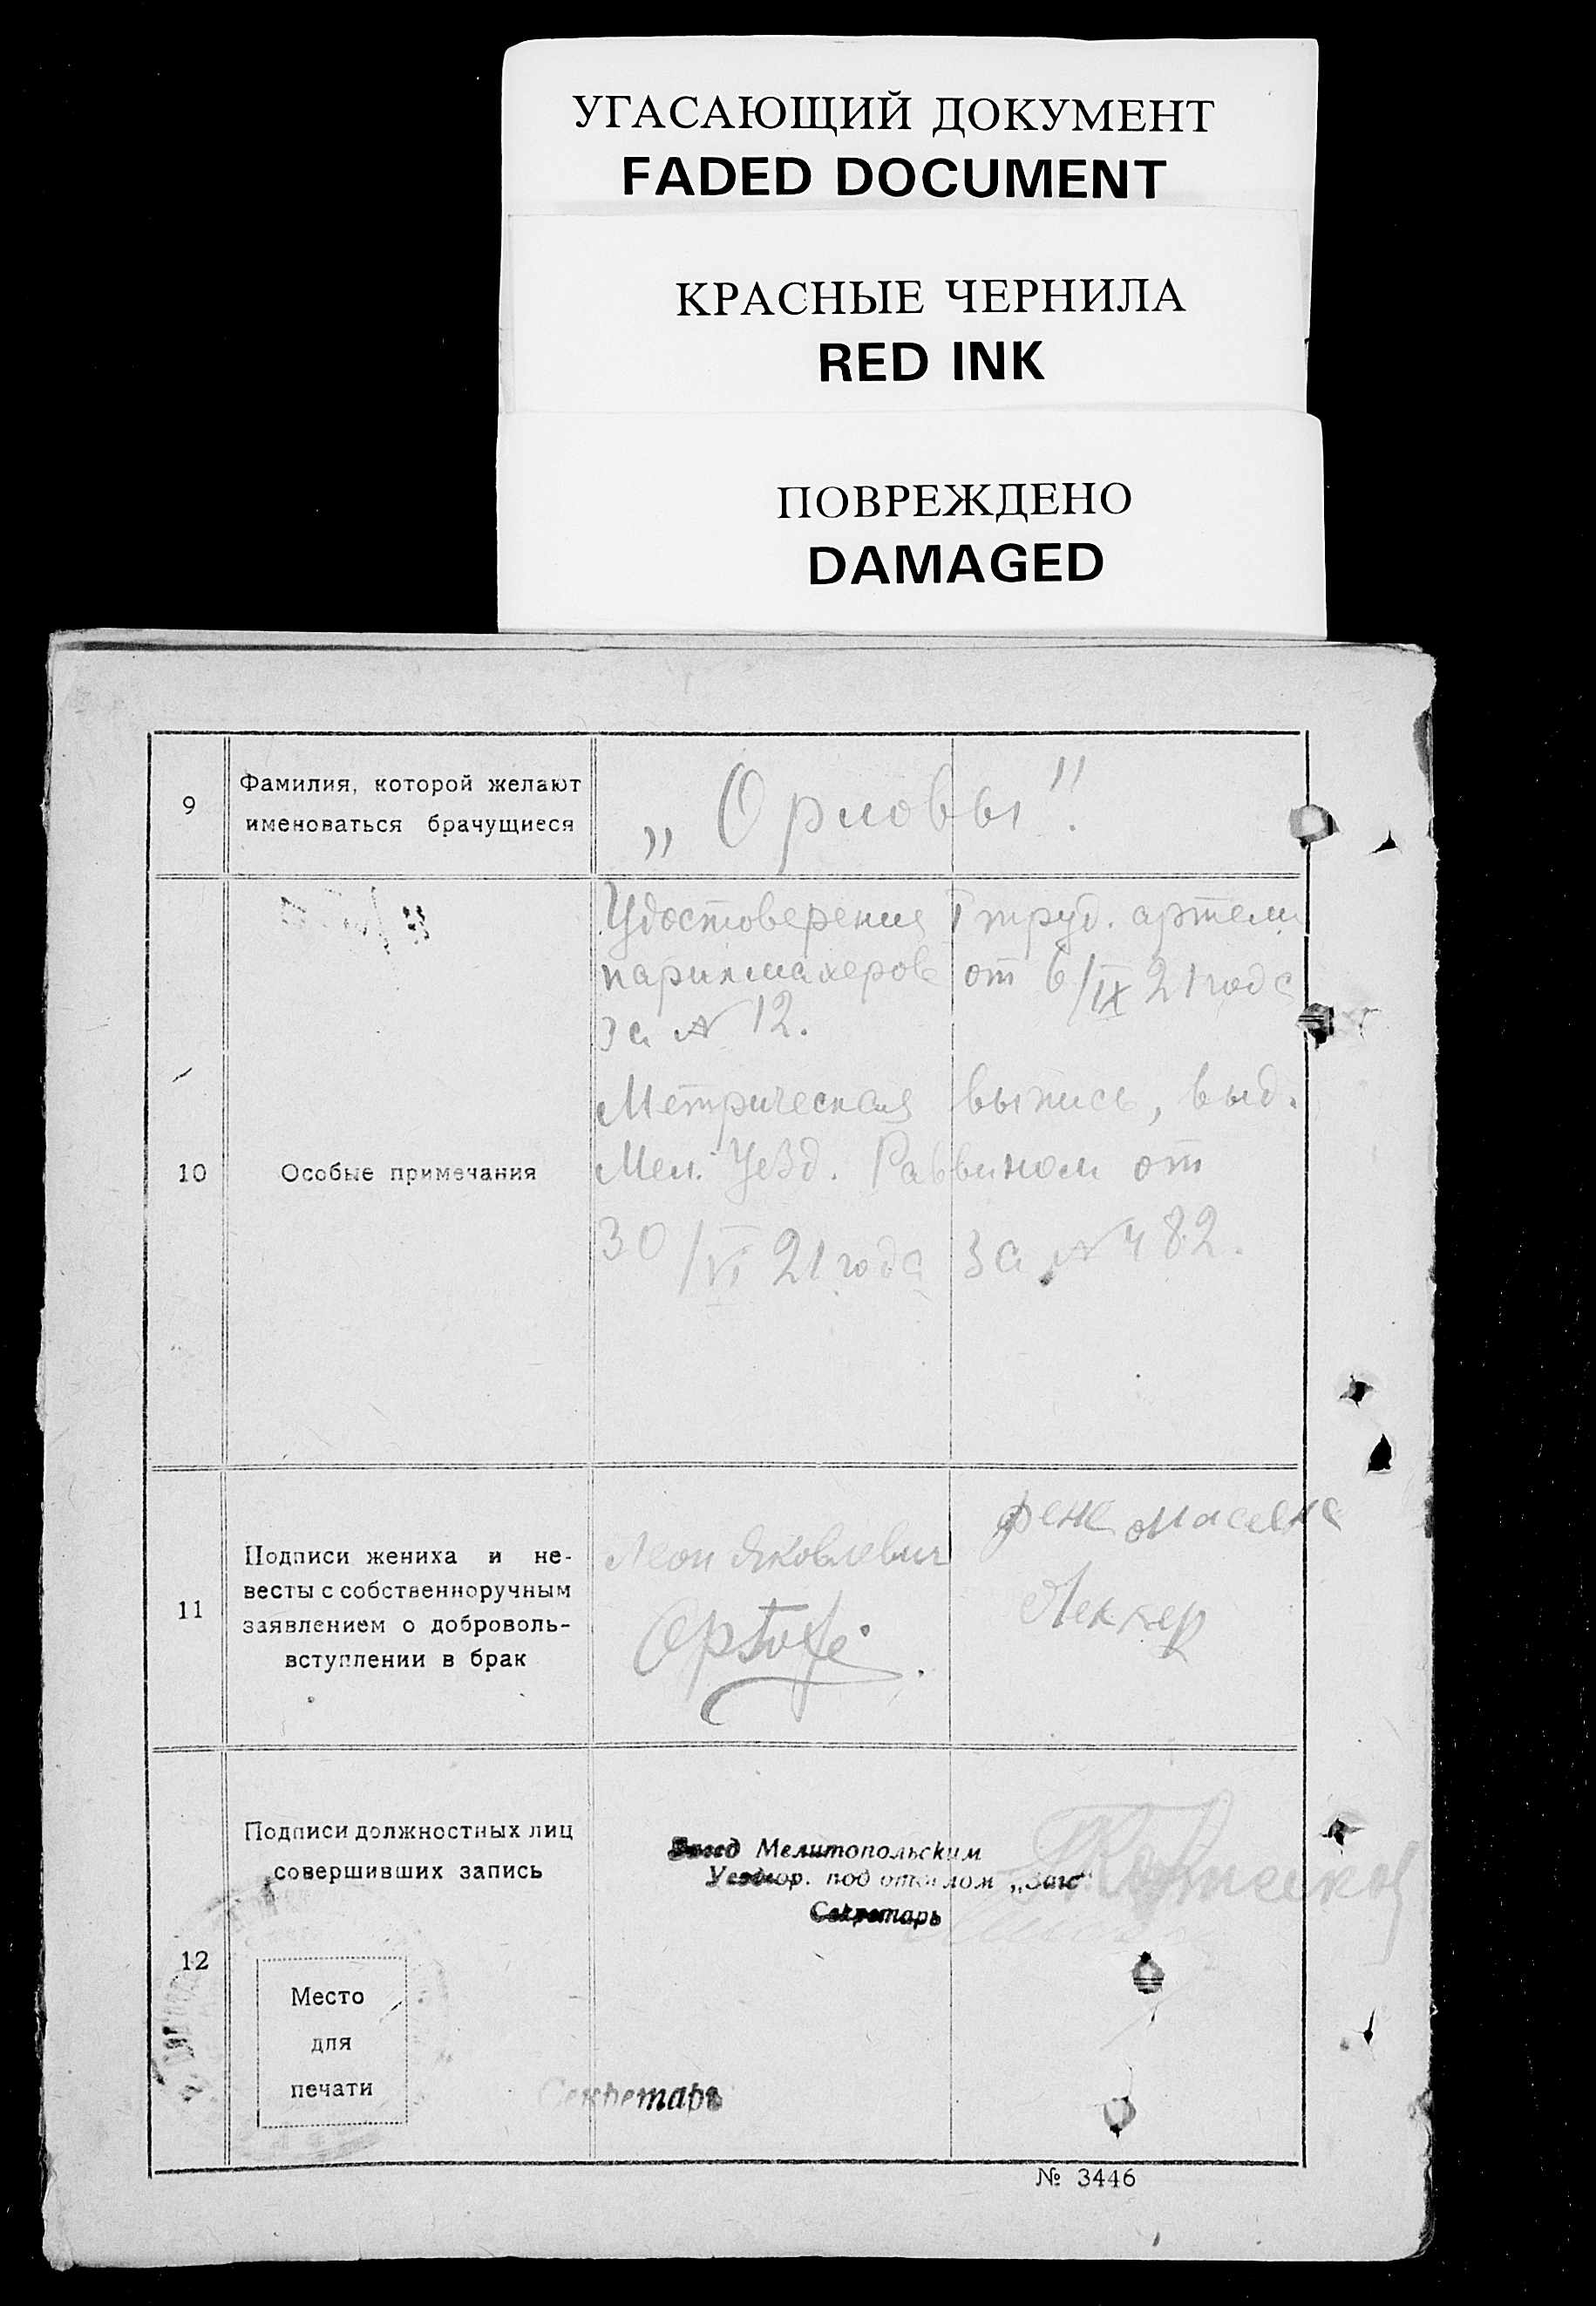 УГАСАЮЩИЙ ДОКУМЕНТ
FADED DOCUMENT
КРАСНЫЕ ЧЕРНИЛА
RED INK
ПОВРЕЖДЕНО
DAMAGED
9
Фамилия, которой желают
именоваться брачущиеся
„Орловы".
10
Особые примечания
Удостоверения 1 труд. артели
парикмахеров от 6/IX 21 года
за № 12.
Метрическая выпись, выд.
Мел. Уезд. Раввином от
30/VI 21 года за № 482.
11
Подписи жениха и не-
весты с собственноручным
заявлением о доброволь-
вступлении в брак
Леон Яковлевич
Леккер
12
Подписи должностных лиц
совершивших запись
Завед Мелитопольским
Уездгор. под отделом „Загс"
Секретарь
Место
для
печати
Секретарь
№ 3446